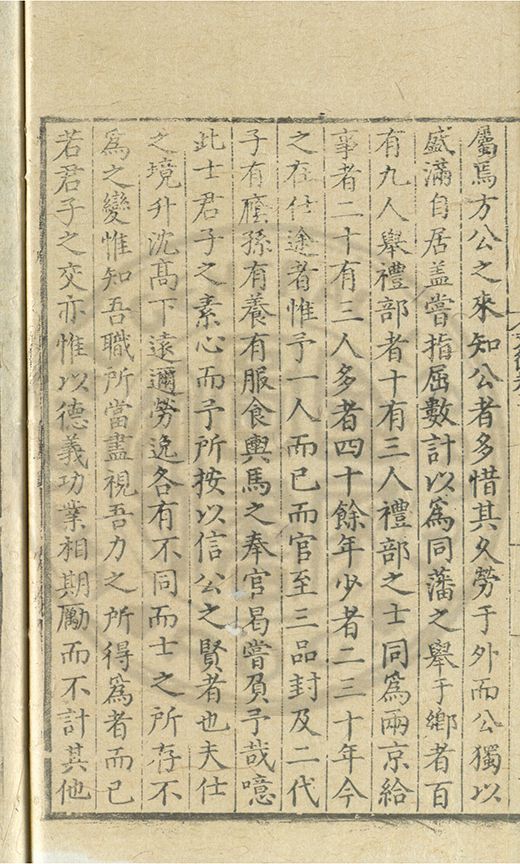 屬焉方公之來知公者多惜其久勞于外而公獨以
盛滿自居盖嘗指屈數計以爲同藩之舉于鄉者百
有九人舉禮部者十有三人禮部之士同爲兩京給
事者二十有三人多者四十餘年少者二三十年今
之在仕途者惟予一人而已而官至三品封及二代
子有廕孫有養有服食輿馬之奉官曷嘗負予哉噫
此士君子之素心而予所按以信公之賢者也夫仕
之境升沈髙下遠邇勞逸各有不同而士之所存不
爲之變惟知吾職所當盡視吾力之所得爲者而已
若君子之交亦惟以德義功業相期勵而不計其他